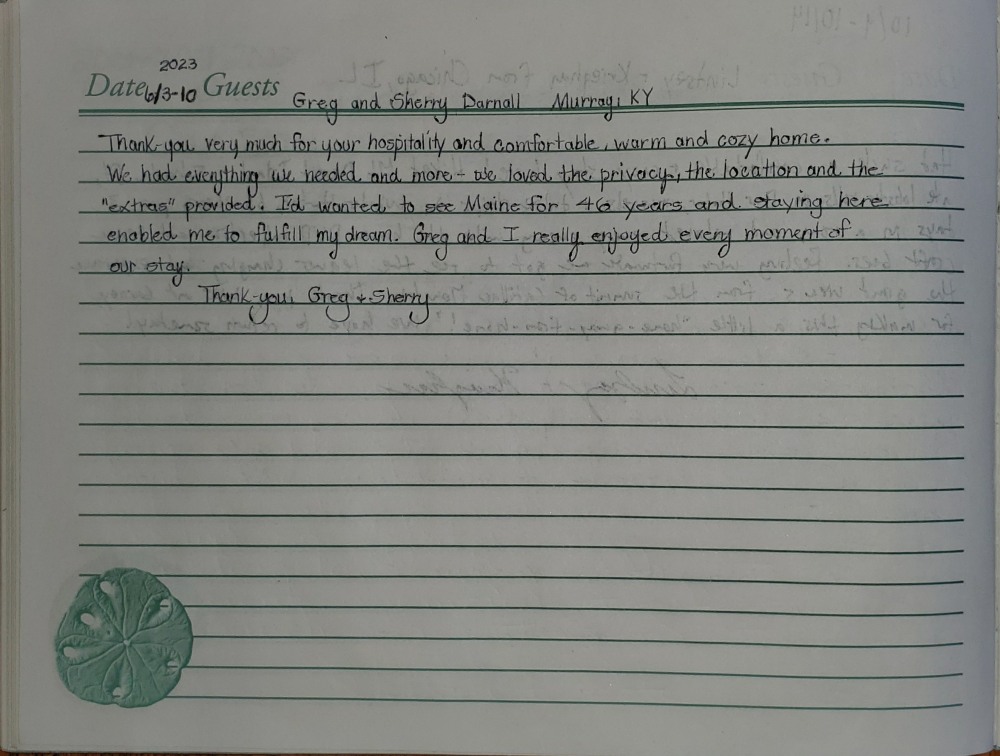 2023
Date 6/3-10 Guests Greg and Sherry Darnall Murray, KY
Thank-you very much for your hospitality and comfortable, warm and cozy home.
We had everything we needed and more - we loved the privacy, the location and the
"extras" provided. I'd wanted to see Maine for 46 years and staying here
enabled me to fulfill my dream. Greg and I really enjoyed every moment of
our stay.
Thank-you, Greg & Sherry